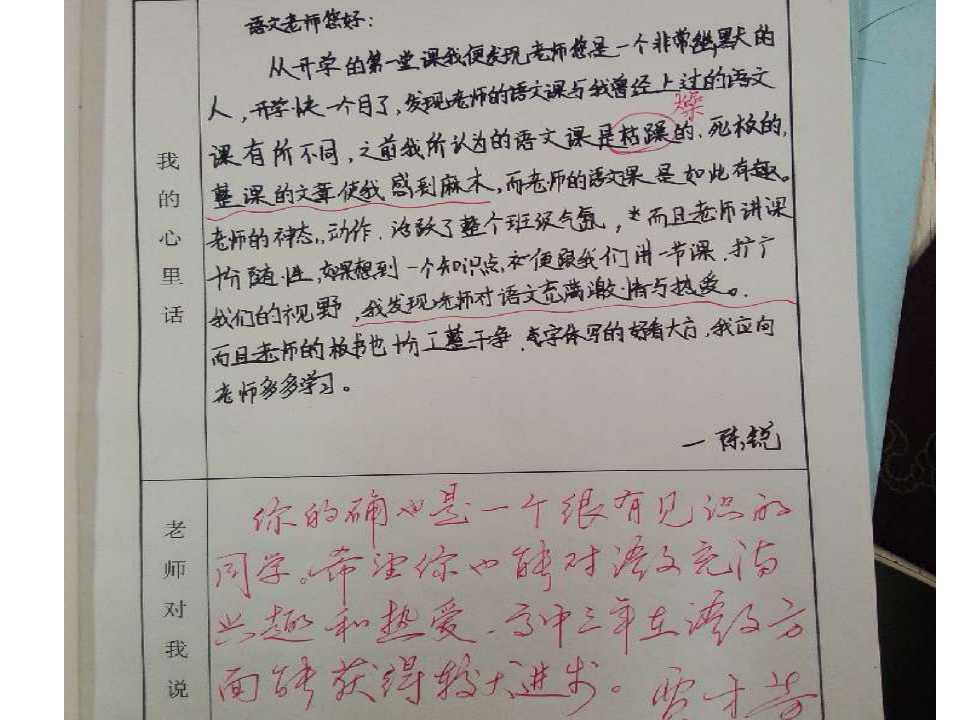 我的心里话
语文老师您好：
从开学的第一堂课我便发现，老师您是一个非常幽默的
人，开学快一个月了，发现老师的语文课与我曾经上过的语文
课有所不同，之前我所认为的语文课是枯躁的，死板的，
燥
整课的文章使我感到麻木，而老师的语文课是如此有趣。
老师的神态，动作，活跃了整个班级气氛，而且老师讲课
十分随性，如果想到一个知识点，便跟我们讲一节课，扩广
我们的视野，我发现老师对语文充满激情与热爱。
而且老师的板书也十分工整干净，字体写的好看大方，我应向
老师多多学习。
—陈锐
老师对我说
你的确也是一个很有见识的
同学。希望你也能对语文充满
兴趣和热爱，高中三年在语文方
面能获得较大进步。